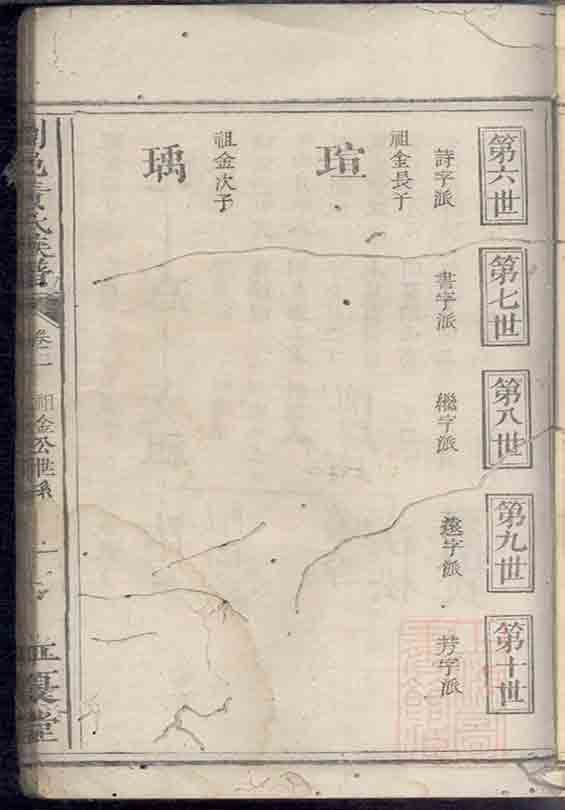 第六世
第七世
第八世
第九世
第十世
詩字派
書字派
繼字派
遠字派
芳字派
祖金長子
瑄
祖金次子
瑀
邑黃氏族譜
卷二
祖金公世系